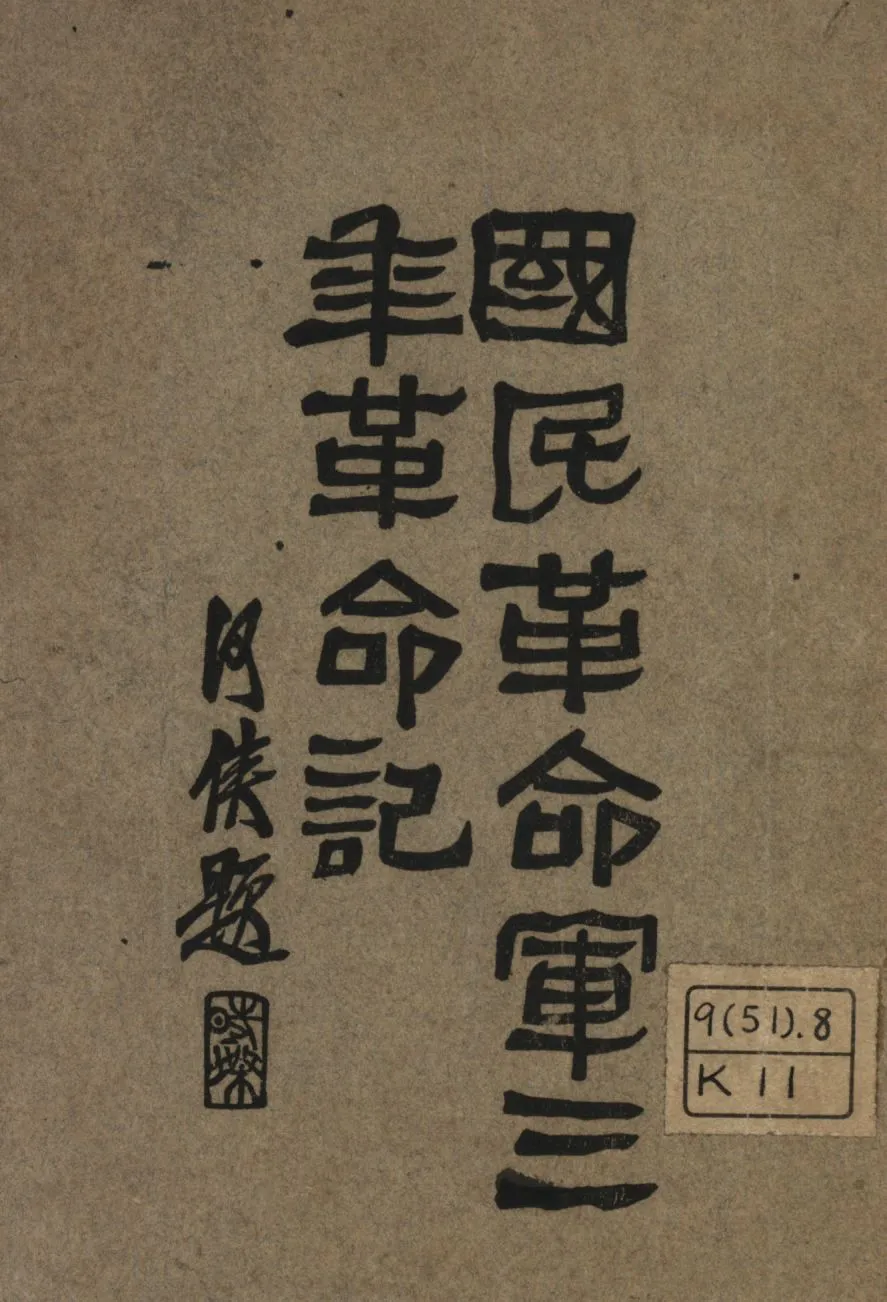 國民革命軍三
年革命記
題
9(51).8
K 11